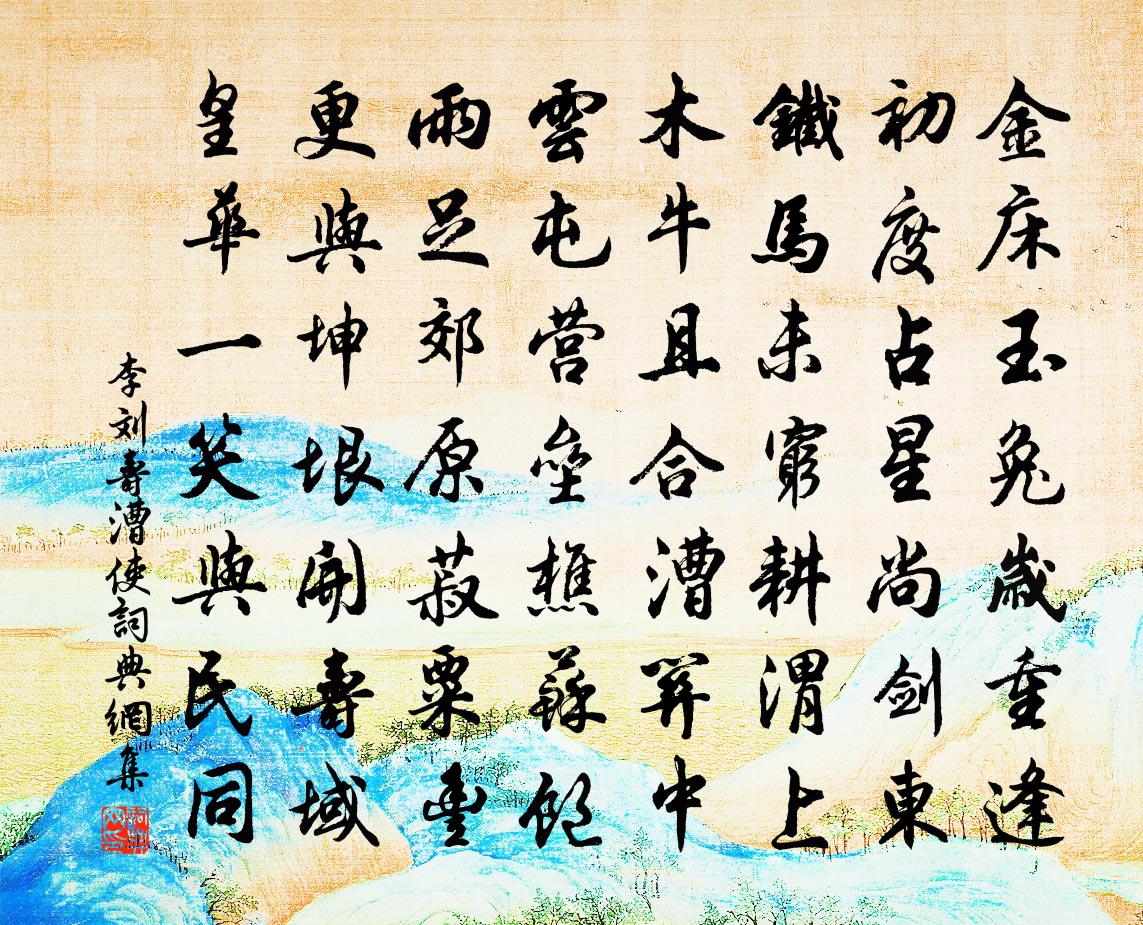 金床玉兔歲重逢
初度占星尚剑東
鐵馬未窮耕渭上
木牛且合漕笄中
雲屯营壘樵蘇飽
雨足郊原菽粟豊
更與坤垠開壽域
皇華一笑與民同
李刘壽漕使詞典網集